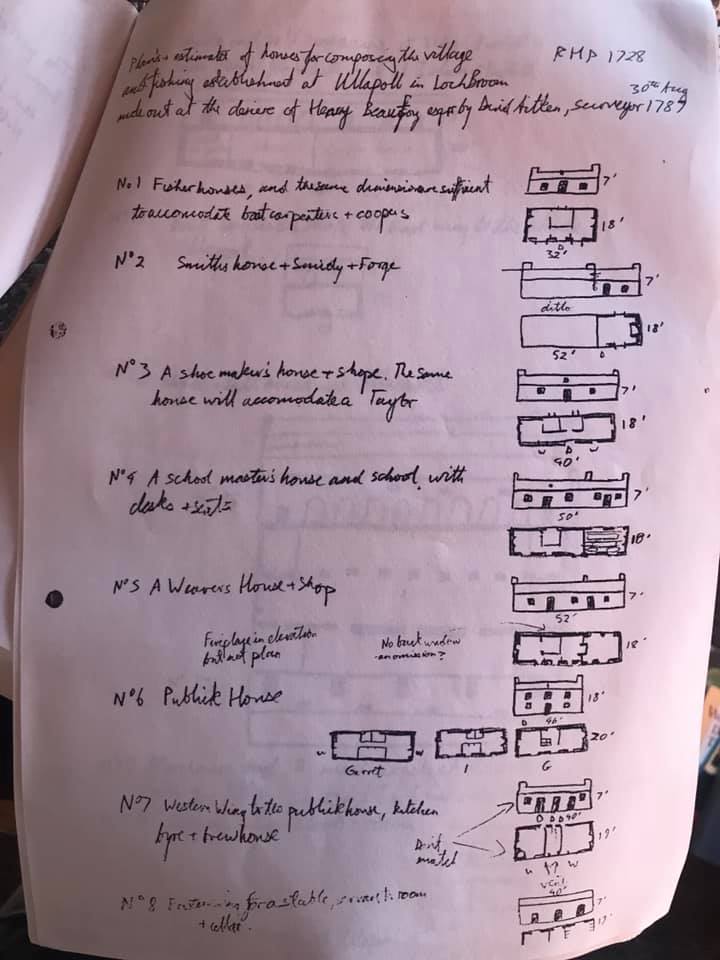 Plans + estimates of houses for composing the village RHP 1728
and fishing establishment at Ullapoll in LochBroom 30th Aug
made out at the desire of Henry Beaufoy esqr by David Aitken, surveyor 1789
No 1 Fisherhouses, and the same dimension are sufficient 7'
to accomodate boat carpenters + coopers 18'
D
32'
No 2 Smiths house + Smidy + Forge 7'
ditto
18'
52' D
No 3 A shoe maker's house + shope. The same 7'
house will accomodate a Taylr 18'
D
40'
No 4 A school master's house and school, with 7'
desks + seats 50'
18'
No 5 A Weavers House + shop 7'
52'
Fireplace in elevation No back window 18'
but not plan an omission?
No 6 Publick House 18'
D 46'
20'
Garret 1 G
No 7 Western Wing to the publickhouse, kitchen 7'
byre + brewhouse D D D 40'
Don't 17'
match
W W
40'
No 8 Eastern wing for a stable, servants room
+ cellar. 17'